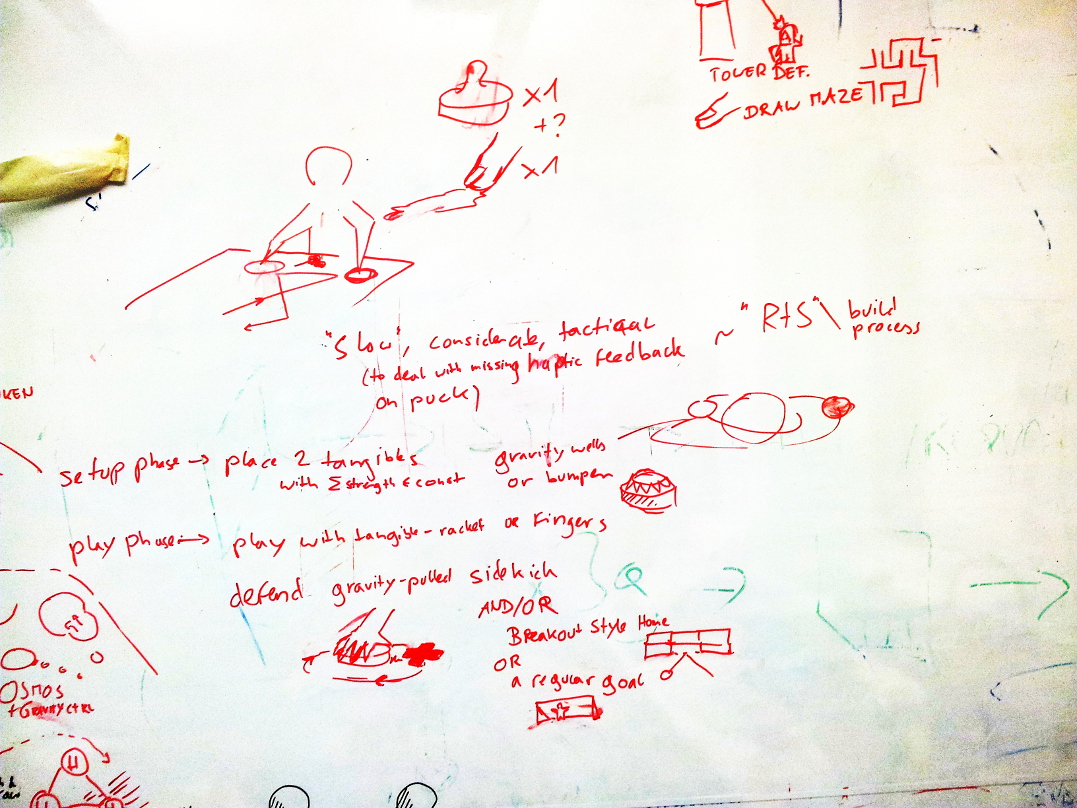 TOWER DEF.
DRAW MAZE
x1
+?
x1
"Slow", considerate, tactical
(to deal with missing haptic feedback
on puck)
~ "RTS" \ build
process
KEN
setup phase → place 2 tangibles
with Σ strength = const
gravity wells
or bumper
play phase → play with tangible-racket or Fingers
defend gravity-pulled sidekick
AND/OR
Breakout Style Home
OR
a regular goal
OSMOS
+ GRAVITY CTRL
H